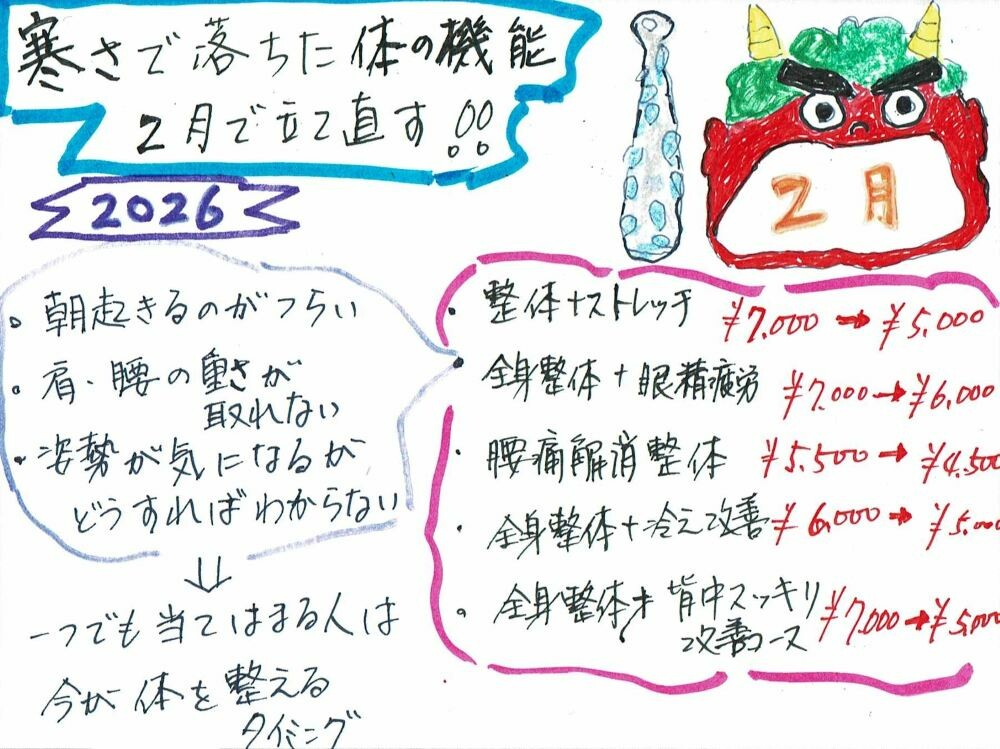 寒さで落ちた体の機能
2月で立て直す!!
2026
2月
・朝起きるのがつらい
・肩・腰の重さが
取れない
・姿勢が気になるが
どうすればわからない
⇓
一つでも当てはまる人は
今が体を整える
タイミング
・整体+ストレッチ ¥7.000→¥5.000
・全身整体+眼精疲労 ¥7.000→¥6.000
・腰痛解消整体 ¥5.500→¥4.500
・全身整体+冷え改善 ¥6.000→¥5.000
・全身整体+背中スッキリ
改善コース ¥7.000→¥5.000